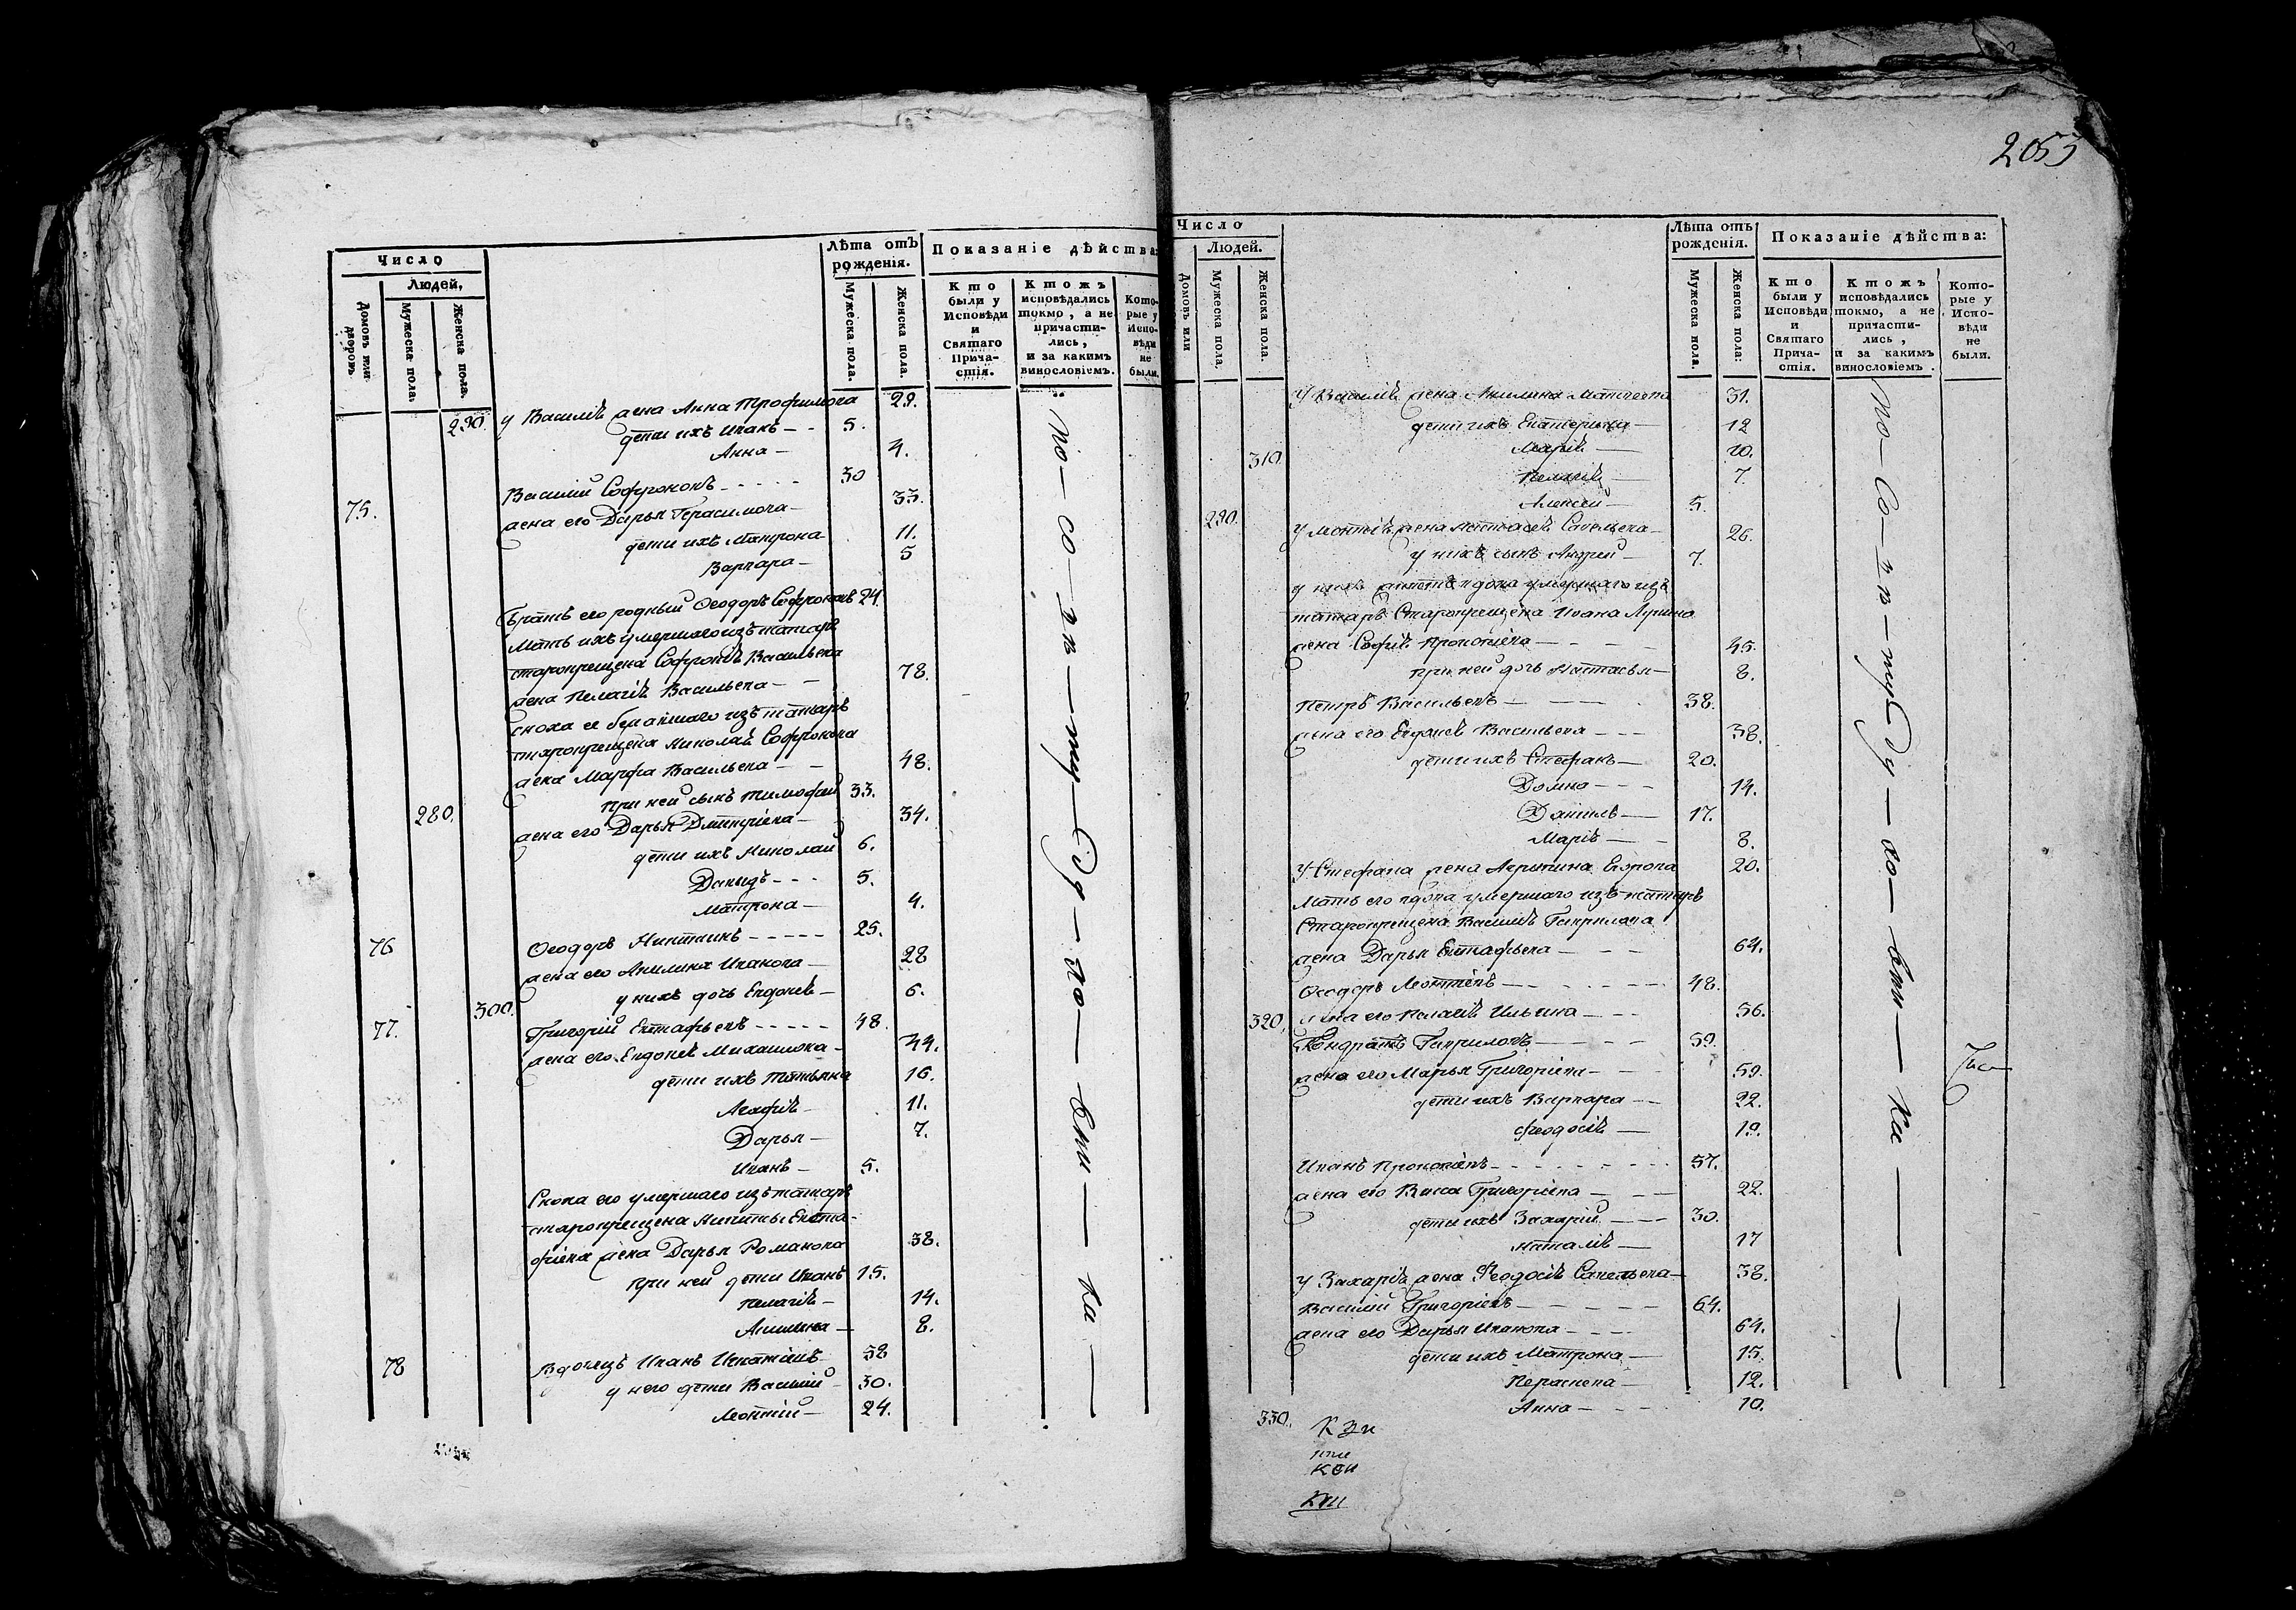 2055
Число
Людей,
Домовъ или дворовъ.
Мужеска пола.
Женска пола.
Лѣта отъ рожденія.
Мужеска пола.
Женска пола.
Показаніе дѣйства:
Кто были у Исповѣди и Святаго Прича-стія.
Ктожъ исповѣдались токмо, а не причасти-лись, и за какимъ винословіемъ.
Кото-рые у Испо-вѣди не были.
290. у Василія жена Анна Трофимова 29.
дѣти ихъ Иванъ 5.
Анна 4.
75. Василій Софроновъ 30
жена его Дарья Герасимова 33.
дѣти ихъ Матрона 11.
Варвара 5
Братъ его родный Ѳеодоръ Софроновъ 24.
Мать ихъ умершаго изъ татаръ
старокрещена Софронія Васильева
жена Пелагія Васильева 78.
сноха ее бежавшаго изъ татаръ
старокрещена Николая Софронова
жена Марфа Васильева 48.
при ней сынъ Тимофей 33.
280. жена его Дарья Дмитріева 34.
дѣти ихъ Николай 6.
Давыдъ 5.
Матрона 4.
76 Ѳеодоръ Никитинъ 25.
жена его Акилина Иванова 28
300. у нихъ дочь Евдокія 6.
77. Григорій Евтафьевъ 48.
жена его Евдокія Михаилова 44.
дѣти ихъ Татьяна 16.
Агафія 11.
Дарья 7.
Иванъ 5.
Сноха его умершаго изъ татаръ
старокрещена Никиты Евста-
фіева жена Дарья Романова 38.
при ней дѣти Иванъ 15.
Пелагія 14.
Акилина 8.
78 Вдовецъ Иванъ Игнатіевъ 58
у него дѣти Василій 30.
Леонтій 24.
Число
Людей.
Домовъ или
Мужеска пола.
Женска пола.
Лѣта отъ рожденія.
Мужеска пола.
Женска пола:
Показаніе дѣйства:
Кто были у Исповѣди и Святаго Прича-стія.
Ктожъ исповѣдались токмо, а не причасти-лись, и за какимъ винословіемъ.
Кото-рые у Испо-вѣди не были.
У Василія жена Акилина Матвеева 31.
дѣти ихъ Екатерина 12
310. Марія 10.
Пелагія 7.
Алексей 5.
290. У Леонтія жена Наталія Савельева 26.
у нихъ сынъ Андрей 7.
у нихъ живетъ вдова умершаго изъ
татаръ Старокрещена Ивана
жена Софія Прокопіева 45.
при ней дочь Настасья 8.
Петръ Васильевъ 38.
жена его Евдокія Васильева 38.
дѣти ихъ Стефанъ 20.
Домна 14.
Даніилъ 17.
Марія 8.
У Стефана жена Агрипина Егорова 20.
Мать его вдова умершаго изъ татаръ
Старокрещена Василія Гаврилова
жена Дарья Евтафьева 64.
Ѳеодоръ Леонтіевъ 48.
320. жена его Пелагія Ильина 56.
Кондратъ Гавриловъ 59.
жена его Марья Григоріева 59.
дѣти ихъ Варвара 22.
Ѳеодосія 19.
Иванъ Прокопіевъ 57.
жена его Васса Григоріева 22.
дѣти ихъ Захарій 30.
Наталія 17
у Захарія жена Ѳеодосія Савельева 38.
Василій Григоріевъ 64.
жена его Дарья Иванова 64.
дѣти ихъ Матрона 15.
Параскева 12.
330. Анна 10.